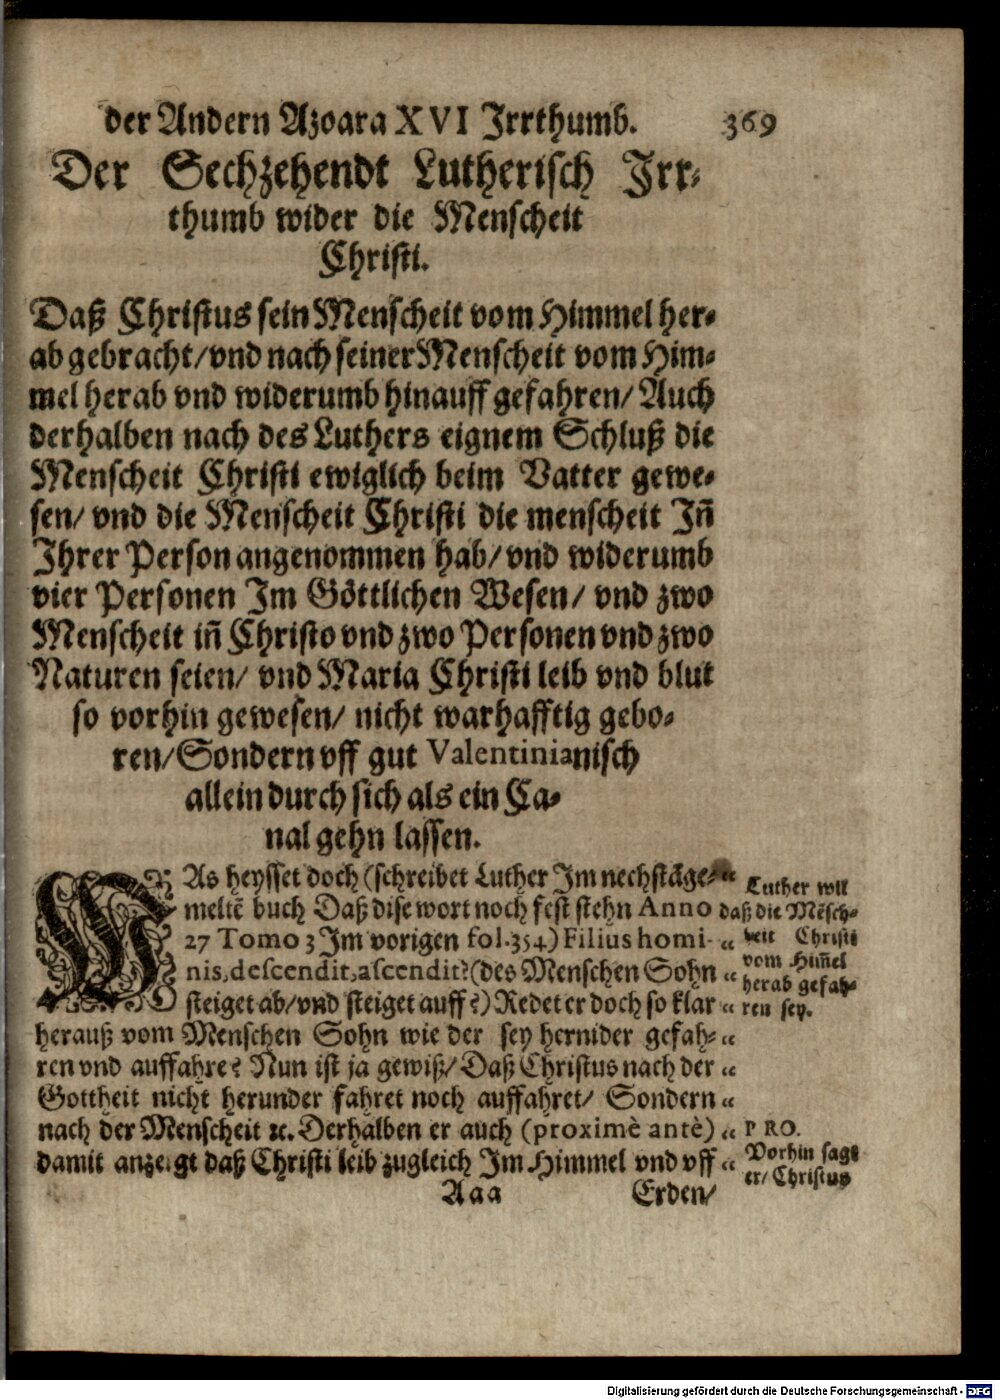 der Andern Azoara XVI Irrthumb. 369
Der Sechzehendt Lutherisch Irr⸗
thumb wider die Menscheit
Christi.
Daß Christus sein Menscheit vom Himmel her⸗
ab gebracht/vnd nach seiner Menscheit vom Him⸗
mel herab vnd widerumb hinauff gefahren/ Auch
derhalben nach des Luthers eignem Schluß die
Menscheit Christi ewiglich beim Vatter gewe⸗
sen/ vnd die Menscheit Christi die menscheit Iñ
Ihrer Person angenommen hab/ vnd widerumb
vier Personen Im Göttlichen Wesen/ vnd zwo
Menscheit iñ Christo vnd zwo Personen vnd zwo
Naturen seien/ vnd Maria Christi leib vnd blut
so vorhin gewesen/ nicht warhafftig gebo⸗
ren/Sondern vff gut Valentinianisch
allein durch sich als ein Ca⸗
nal gehn lassen.
WAs heysset doch (schreibet Luther Im nechstāge⸗ “
meltē buch Daß dise wort noch fest stehn Anno
27 Tomo 3 Im vorigen fol.354.) Filius homi- “
nis, descendit, ascendit? (des Menschen Sohn “
steiget ab/vnd steiget auff?) Redet er doch so klar “
herauß vom Menschen Sohn wie der sey hernider gefah⸗ “
ren vnd auffahre? Nun ist ja gewiß/ Daß Christus nach der “
Gottheit nicht herunder fahret noch auffahret/ Sondern “
nach der Menscheit ꝛc. Derhalben er auch (proximè antè) “
damit anzeigt daß Christi leib zugleich Im Himmel vnd vff “
Luther will
daß die Mēsch⸗
heit Christi
vom Him̄el
herab gefah⸗
ren sey.
PRO.
Vorhin sagt
er/ Christus
Aaa Erden/
Digitalisierung gefördert durch die Deutsche Forschungsgemeinschaft - DFG